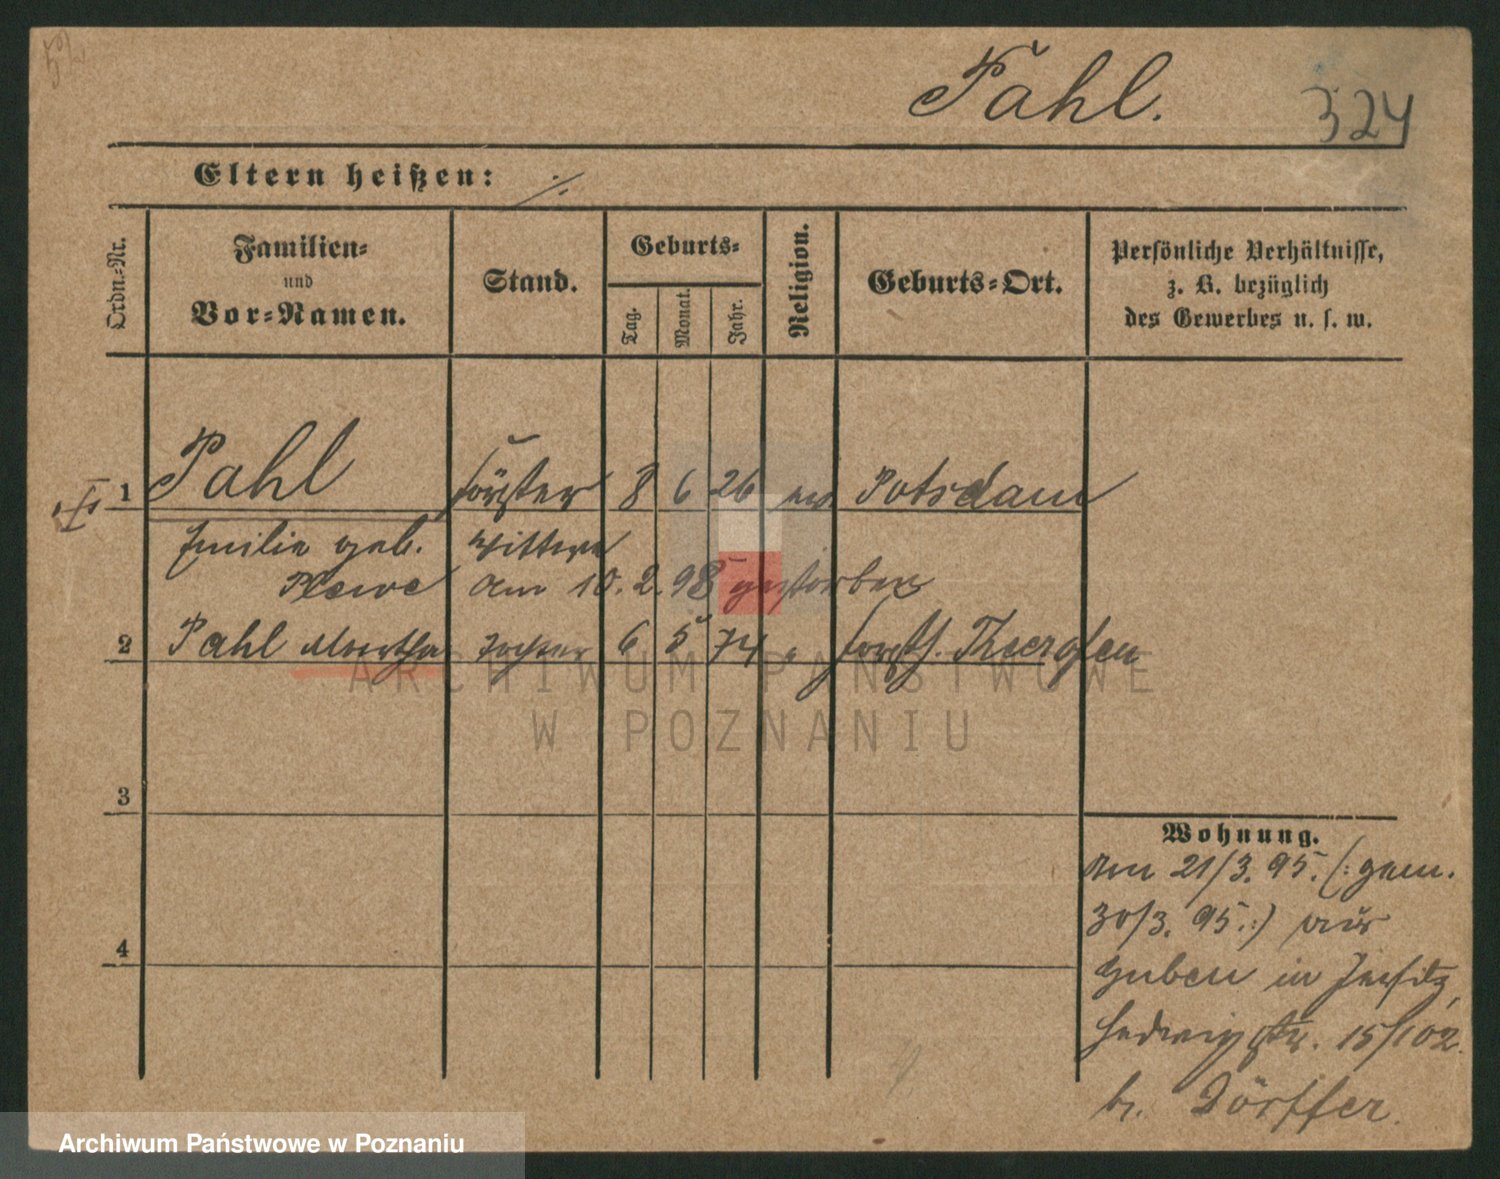 Pahl.
324
Eltern heißen: ./.
Ordn.=Nr.
Familien=
und
Vor=Namen.
Stand.
Geburts=
Tag.
Monat.
Jahr.
Religion.
Geburts=Ort.
Persönliche Verhältnisse,
z. B. bezüglich
des Gewerbes u. s. w.
1 Pahl Förster 8 6 26 ev. Potsdam
Emilie geb. Wittwe
am 10. 2. 98 gestorben
2 Pahl Martha Tochter 6 5 74 "
ARCHIWUM PAŃSTWOWE
W POZNANIU
3
4
Wohnung.
Am 21/3. 95. (: gem.
30/3. 95. :) aus
Guben in Jersitz,
Hedwigstr. 15/102
b. Dörffer.
Archiwum Państwowe w Poznaniu